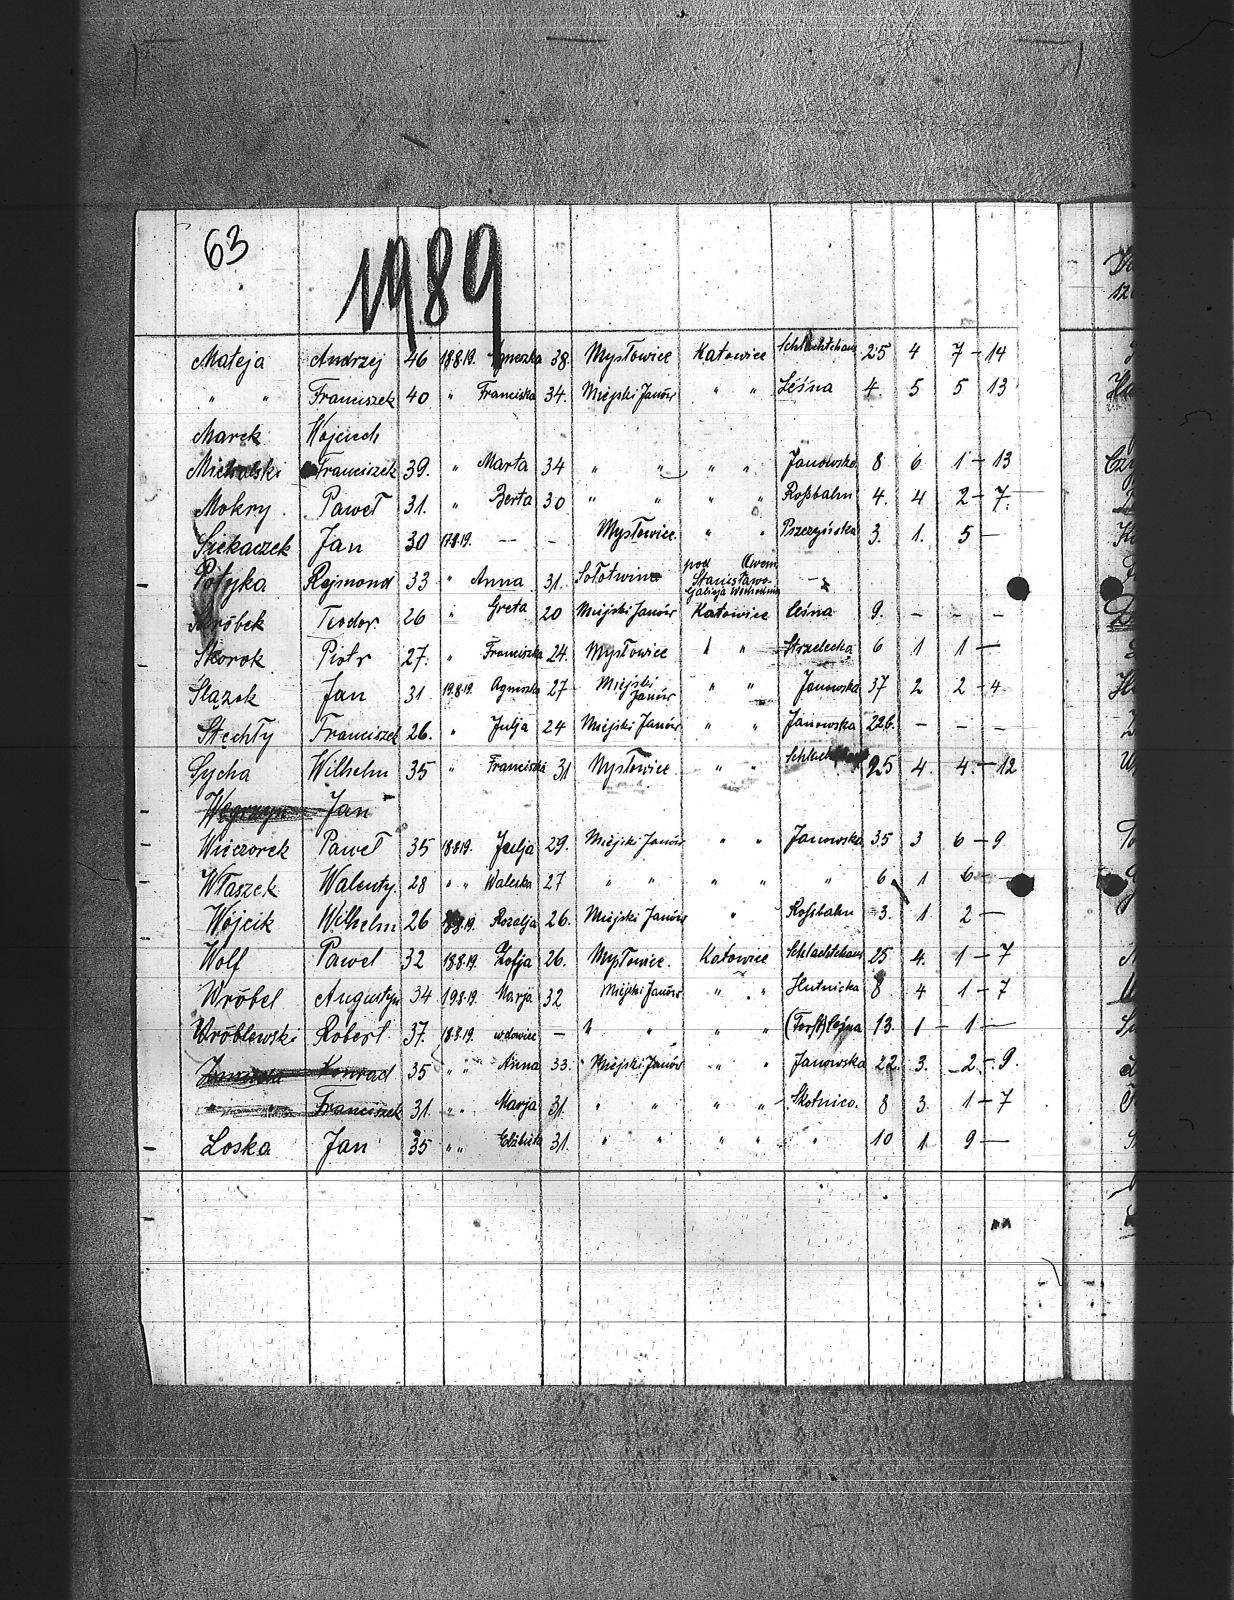 63
1989
Mateja Andrzej 46 18.8.19. Agneszka 38. Mysłowice Katowice Schlachthaus 25 4 7-14
" " Franciszek 40 " Franciska 34. Miejski Janów " " Leśna 4. 5 5 13
Marek Wojciech
Michalski Franciszek 39. " Marta 34 " " " " Janowska. 8 6 1-13
Mokry. Paweł 31. " Berta 30 " " " " Roßbahn 4. 4 2-7.
Siekaczek Jan 30 17.8.19. - - Mysłowice. " " Pszczyńska 3. 1. 5 -
Potyka Rajmond 33 " Anna 31. Sołotwina pod Lwow Stanisławo. Galicja Wschodnia -
Teodor. 26 " Greta 20 Miejski Janów Katowice Leśna 9. - - -
Skorok Piotr 27. " Franciszka 24. Mysłowice " " Strzelecka 6 1 1 -
Ślązok Jan 31. 19.8.19. Agniszka 27 Miejski Janów " " Janowska 37 2 2-4
Stechły Franciszek 26. " Julja 24 Miejski Janów " " Janowska 22b. - - -
Sycha Wilhelm 35 " Franciszka 31 Mysłowice " " 25 4. 4.-12
Węgrzyn Jan
Wieczorek Paweł 35 18.8.19. Julja 29. Miejski Janów " " Janowska 35 3 6-9
Właszek Walenty. 28 " " Waleska 27 " " " " " 6 1 6 -
Wójcik Wilhelm 26 18.8.19. Rozalja 26. Miejski Janów " Roßbahn 3. 1 2 -
Wolf Pawel 32 18.8.19. Zofja 26. Mysłowice. Katowice Schlachthaus 25 4. 1-7
Wróbel Augustyn 34 19.8.19. Marja 32 Miejski Janów " " Hutnicka 8 4 1-7
Wróblewski Robert. 37. 18.8.19. wdowiec - " " " " (Forst) Leśna 13. 1 - 1 -
Konrad 35 " " Anna 33. Miejski Janów " " Janowska 22. 3. 2.-9.
" " Franciszek 31. " " Marja 31. " " " " Skotnica. 8 3. 1-7
Loska Jan 35 " " Elżbieta 31. " " " " " 10 1. 9 -